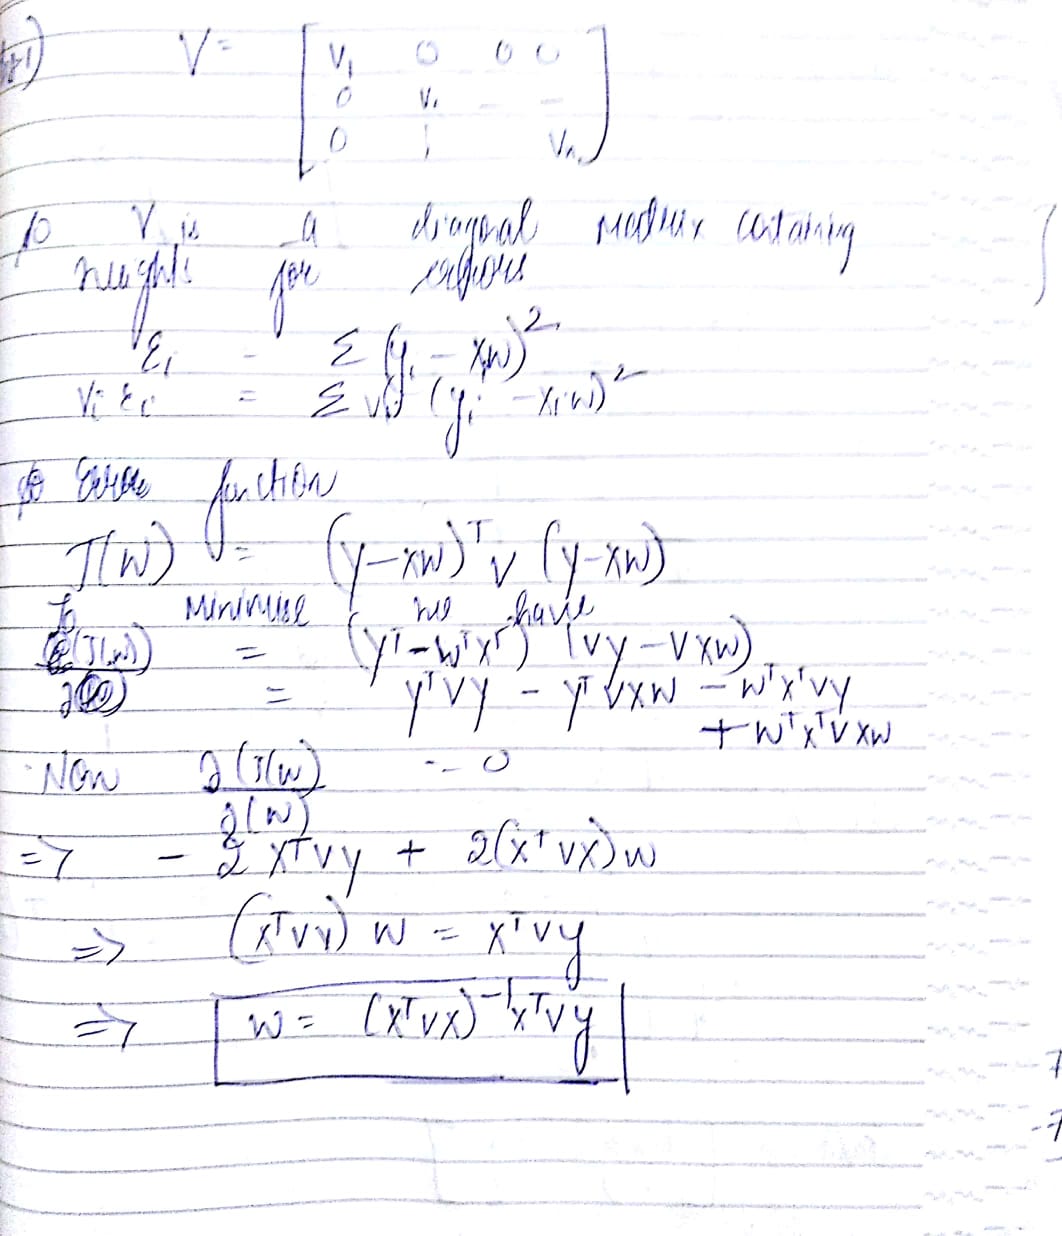 V = [ V₁ 0 0 0
0 Vᵢ - -
0 | Vₙ ]
V is a diagonal matrix containing
weights for
εᵢ = Σ (yᵢ - xᵢw)²
Vᵢ εᵢ = Σ vᵢ (yᵢ - xᵢw)²
Error function
J(W) = (y-xw)ᵀ V (y-xw)
To Minimise we have
∂(J(w)) = (yᵀ - wᵀxᵀ) (Vy - Vxw)
∂ = yᵀVy - yᵀVxw - wᵀxᵀVy
+ wᵀxᵀVxw
Now ∂(J(w) = 0
∂(w)
=> - 2 xᵀVy + 2(xᵀVx)w
=> (xᵀVx) w = xᵀVy
=> w = (xᵀVx)⁻¹xᵀVy
-7
-7